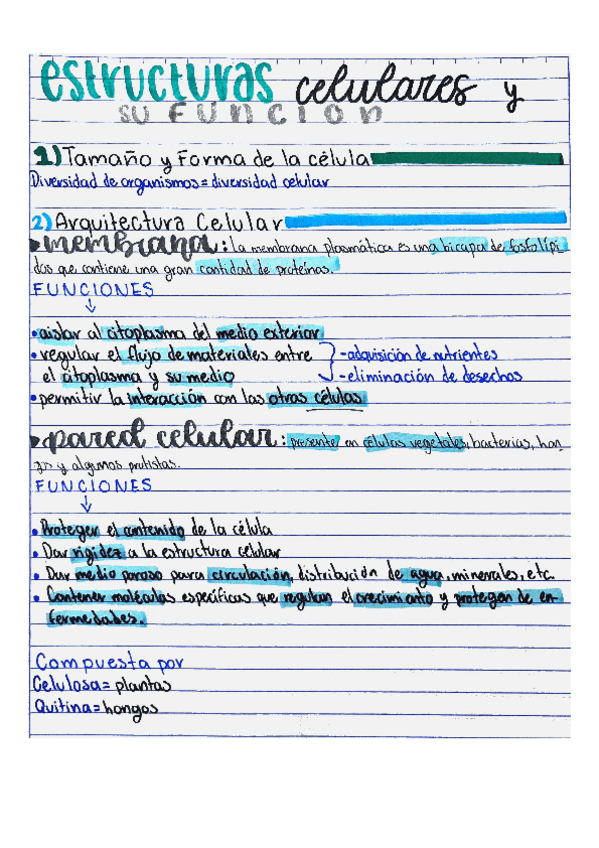 estructuras celulares y
su FUNCION
1) Tamaño y Forma de la célula
Diversidad de organismos = diversidad celular
2) Arquitectura Celular
membrana: la membrana plasmática es una bicapa de fosfolípi
dos que contiene una gran cantidad de proteínas.
FUNCIONES
↓
• aislar al citoplasma del medio exterior
• regular el flujo de materiales entre } -adquisición de nutrientes
el citoplasma y su medio -eliminación de desechos
• permitir la interacción con las otras células
pared celular: presente en células vegetales, bacterias, hon
gos y algunos protistas.
FUNCIONES
↓
• Proteger el contenido de la célula
• Dar rigidez a la estructura celular
• Dar medio poroso para circulación, distribución de agua, minerales, etc.
• Contener moléculas específicas que regulan el crecimiento y protegen de en-
fermedades.
Compuesta por
Celulosa = plantas
Quitina = hongos